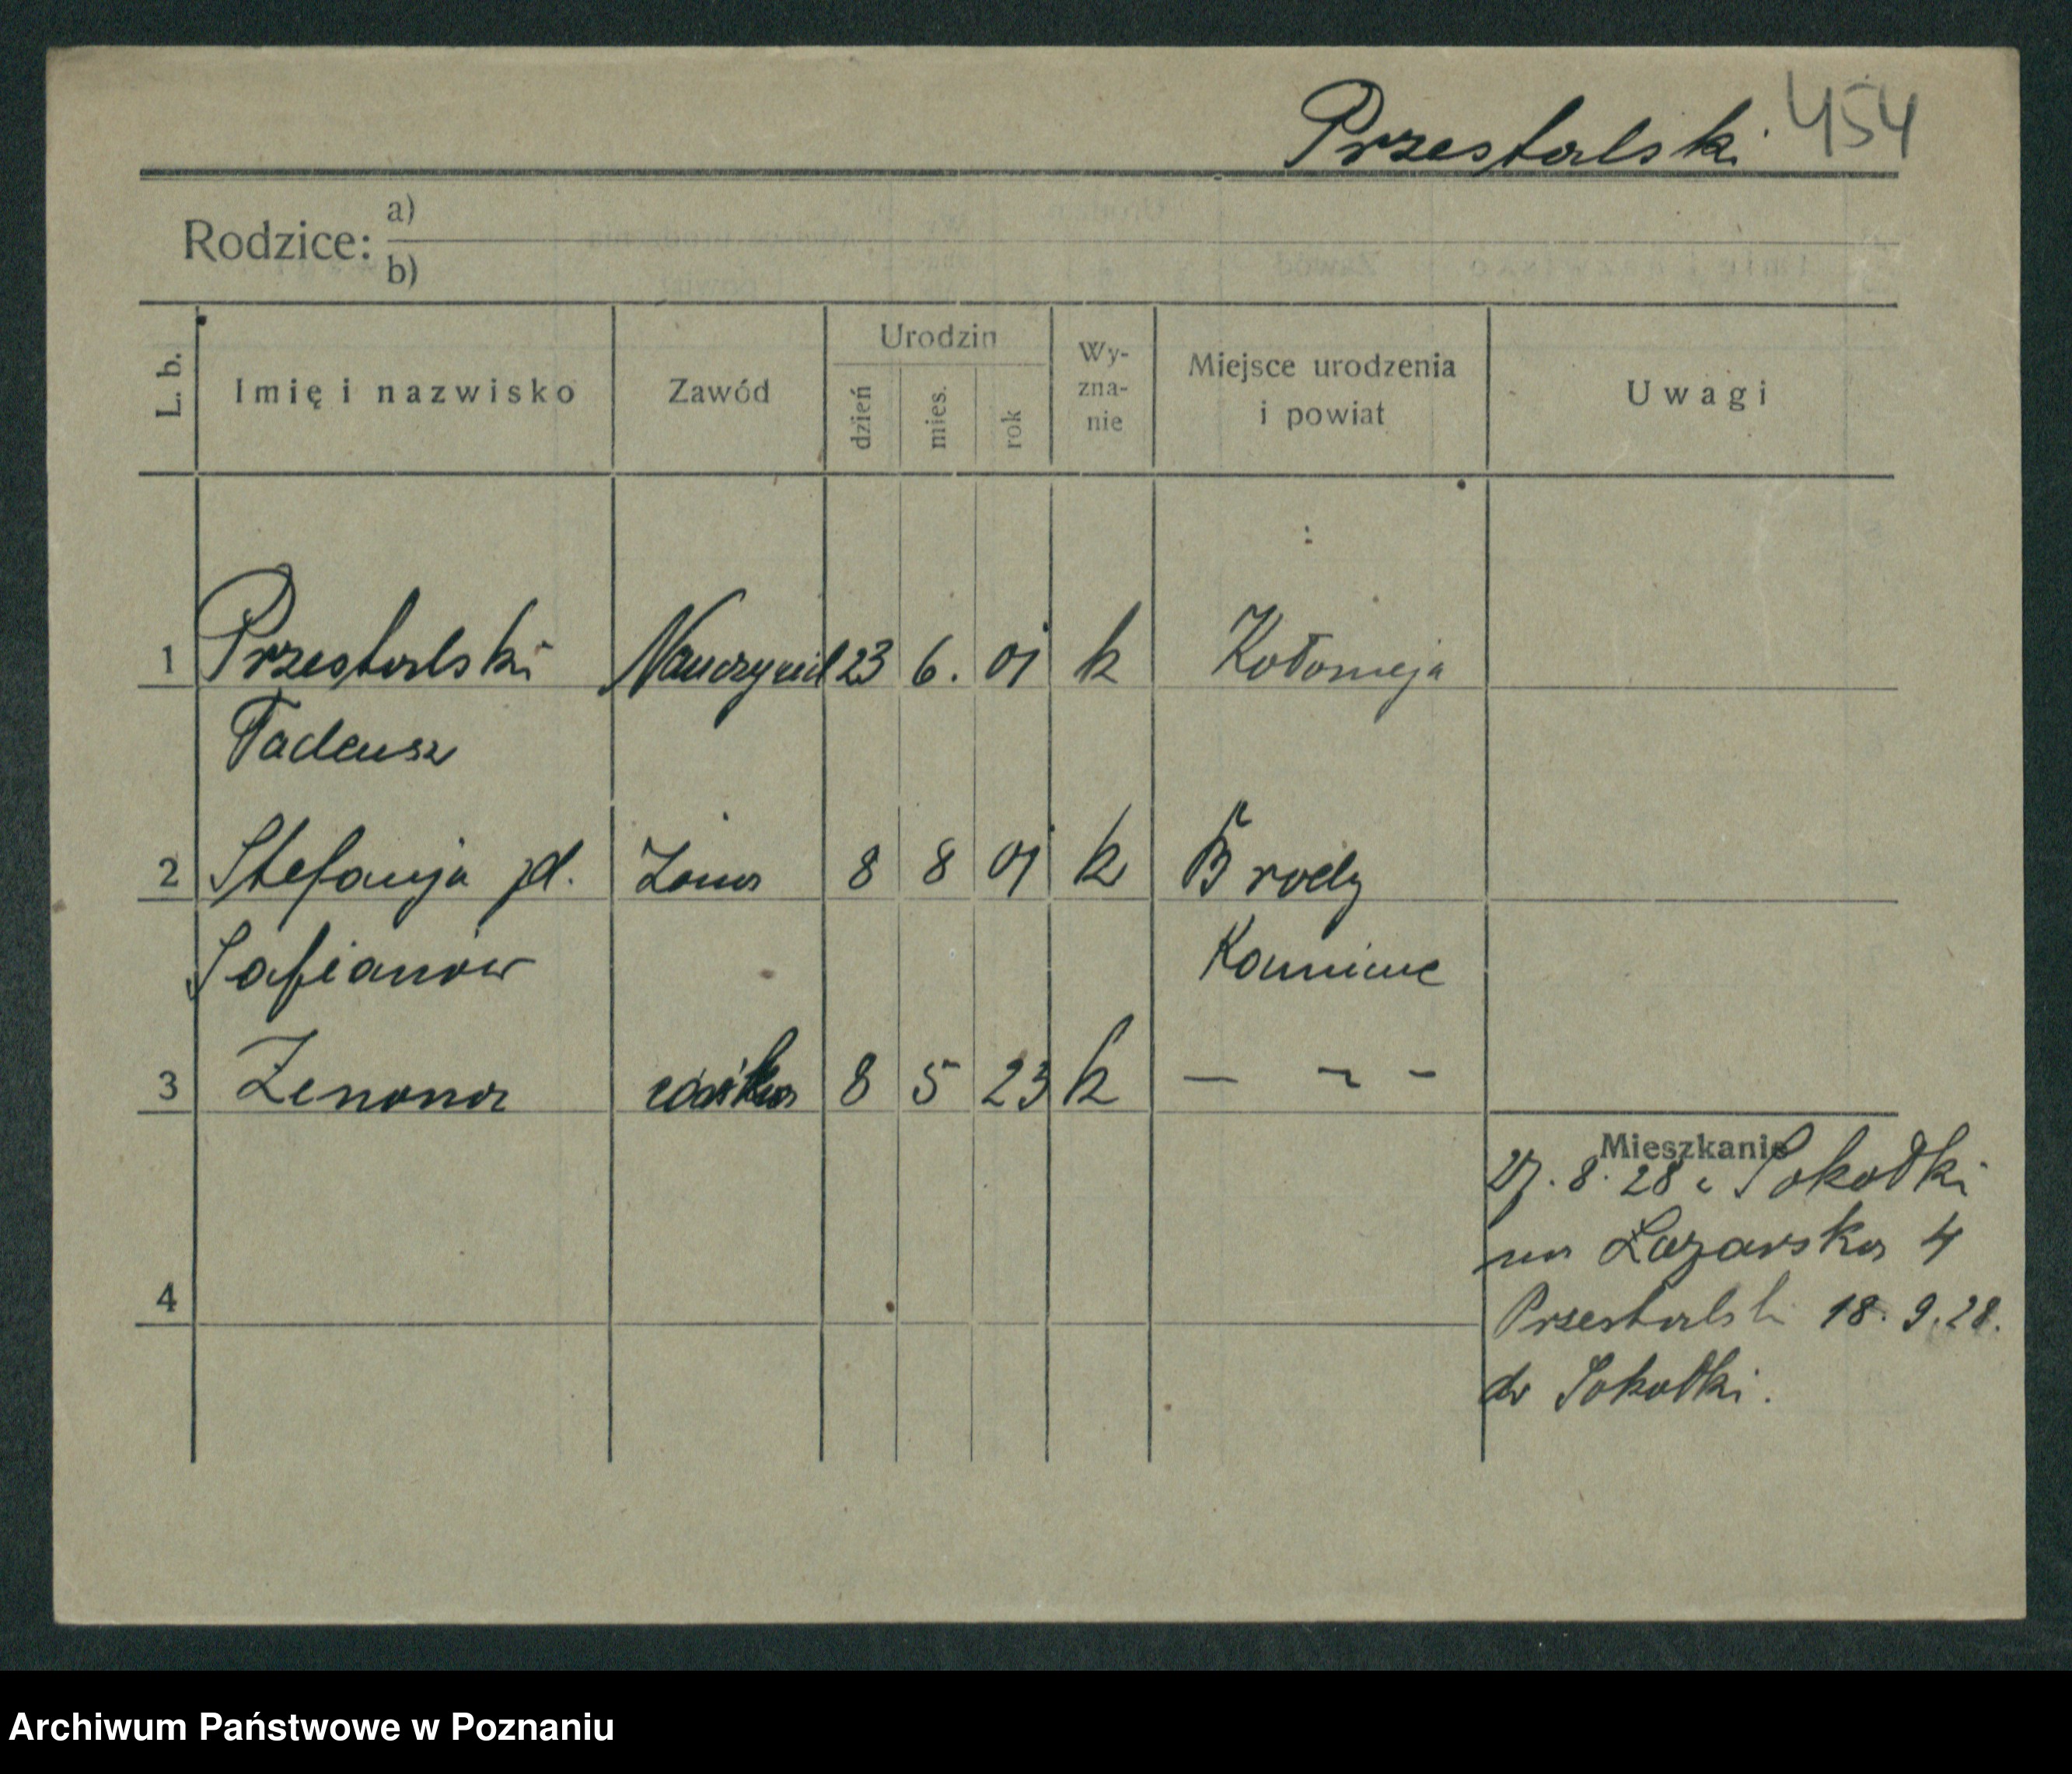 Przestalski 454
Rodzice: a)
b)
L. b. Imię i nazwisko Zawód Urodzin dzień mies. rok Wy-zna-nie Miejsce urodzenia i powiat Uwagi
1 Przestalski Nauczyciel 23 6. 01 k Kołomyja
Tadeusz
2 Stefanja zd. Żona 8 8 01 k Brody
Safianów
3 Zenona córka 8 5 23 k — ~ -
Mieszkanie
27. 8. 28 z Sokółki
na Łazarska 4
4
Przestalski 18. 9. 28.
do Sokółki.
Archiwum Państwowe w Poznaniu